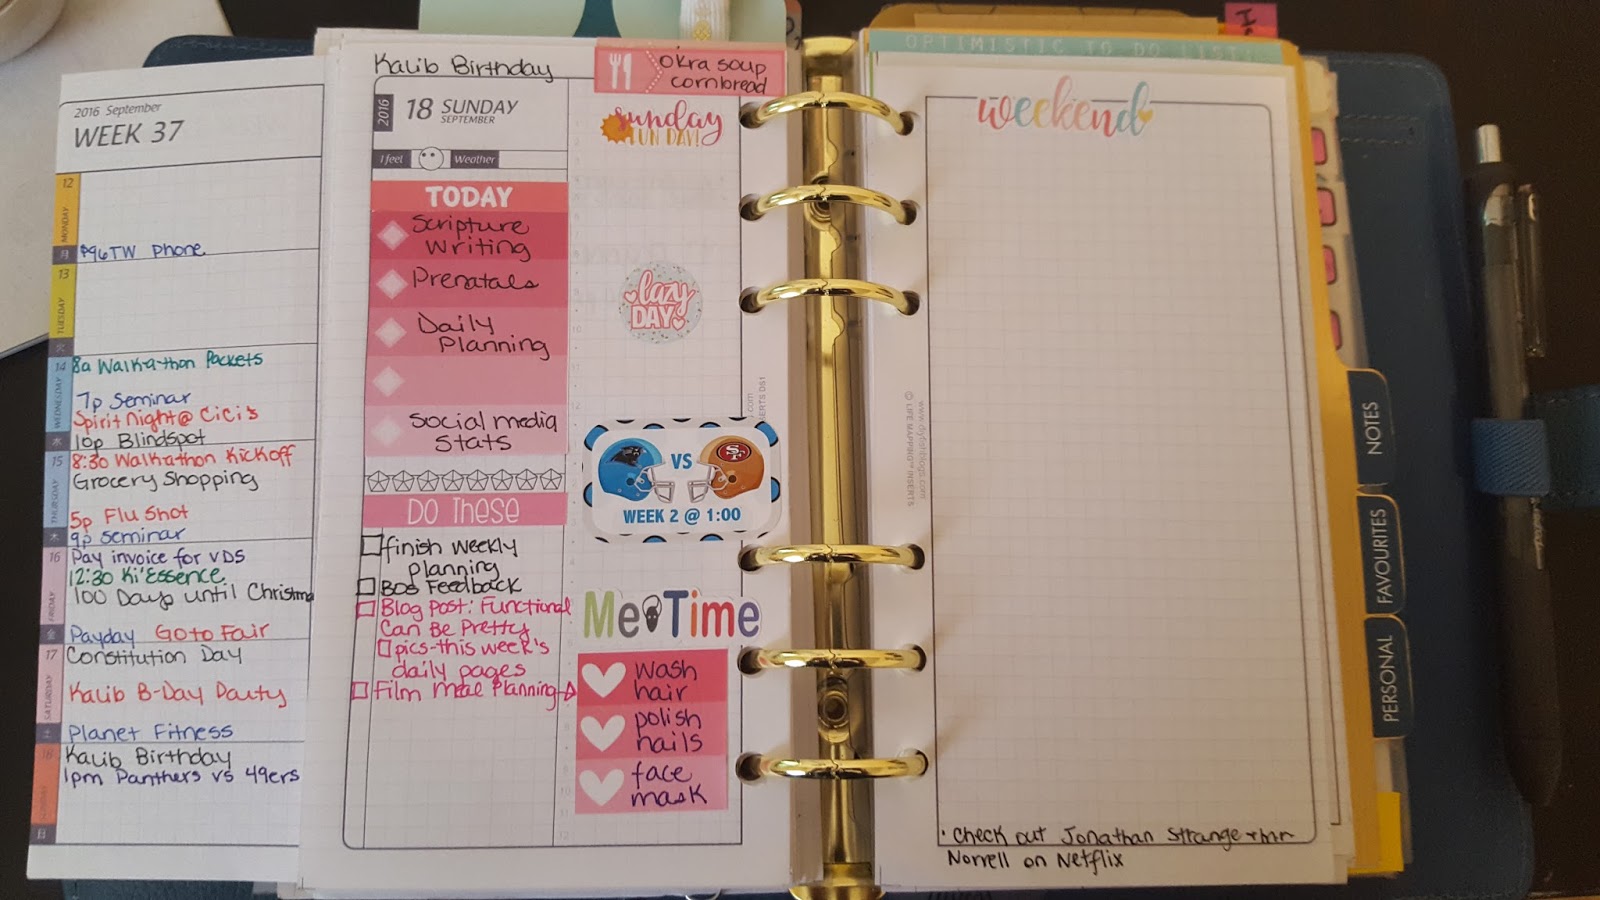 2016 September
WEEK 37
12
MONDAY
月
$96TW Phone
13
TUESDAY
火
14
WEDNESDAY
8a Walk-a-thon Packets
7p Seminar
Spirit Night @ CiCi's
10p Blindspot
水
15
THURSDAY
8:30 Walkathon Kickoff
Grocery Shopping
5p Flu Shot
9p Seminar
木
16
FRIDAY
Pay invoice for VDS
12:30 Ki'Essence
100 Days until Christmas
Payday Go to Fair
金
17
SATURDAY
Constitution Day
Kalib B-Day Party
Planet Fitness
土
18
SUNDAY
Kalib Birthday
1pm Panthers vs 49ers
日
Kalib Birthday
2016
18 SUNDAY
SEPTEMBER
I feel
Weather
TODAY
Scripture
Writing
Prenatals
Daily
Planning
Social media
Stats
Do These
finish weekly
planning
BOS Feedback
Blog Post: Functional
Can Be Pretty
pics-this week's
daily pages
Film Meal Planning
okra soup
cornbread
sunday
FUN DAY!
lazy
DAY
VS
SF
WEEK 2 @ 1:00
Me Time
wash
hair
polish
nails
face
mask
OPTIMISTIC TO DO LIST
weekend
© LIFE MAPPING™ INSERTS
• Check out Jonathan Strange + Mr
Norrell on Netflix
NOTES
FAVOURITES
PERSONAL